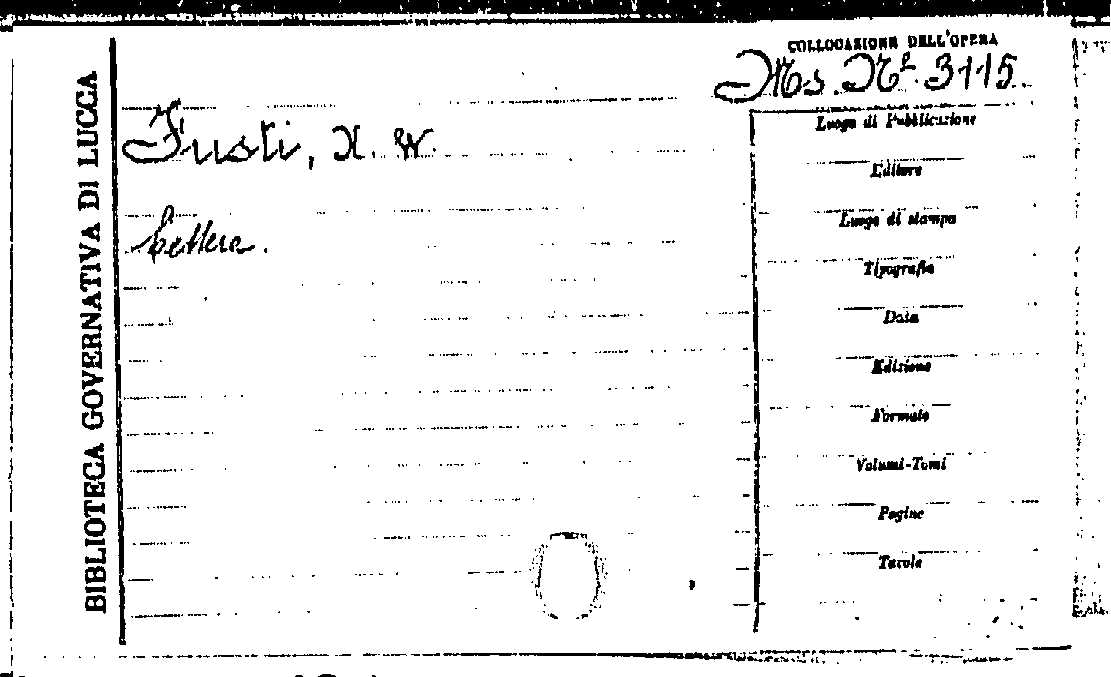 BIBLIOTECA GOVERNATIVA DI LUCCA
COLLOCAZIONE DELL'OPERA
Ms. Nº 3115.
Fusti, N. W.
Lettera.
Luogo di Pubblicazione
Editore
Luogo di stampa
Tipografia
Data
Edizione
Formato
Volumi-Tomi
Pagine
Tavole